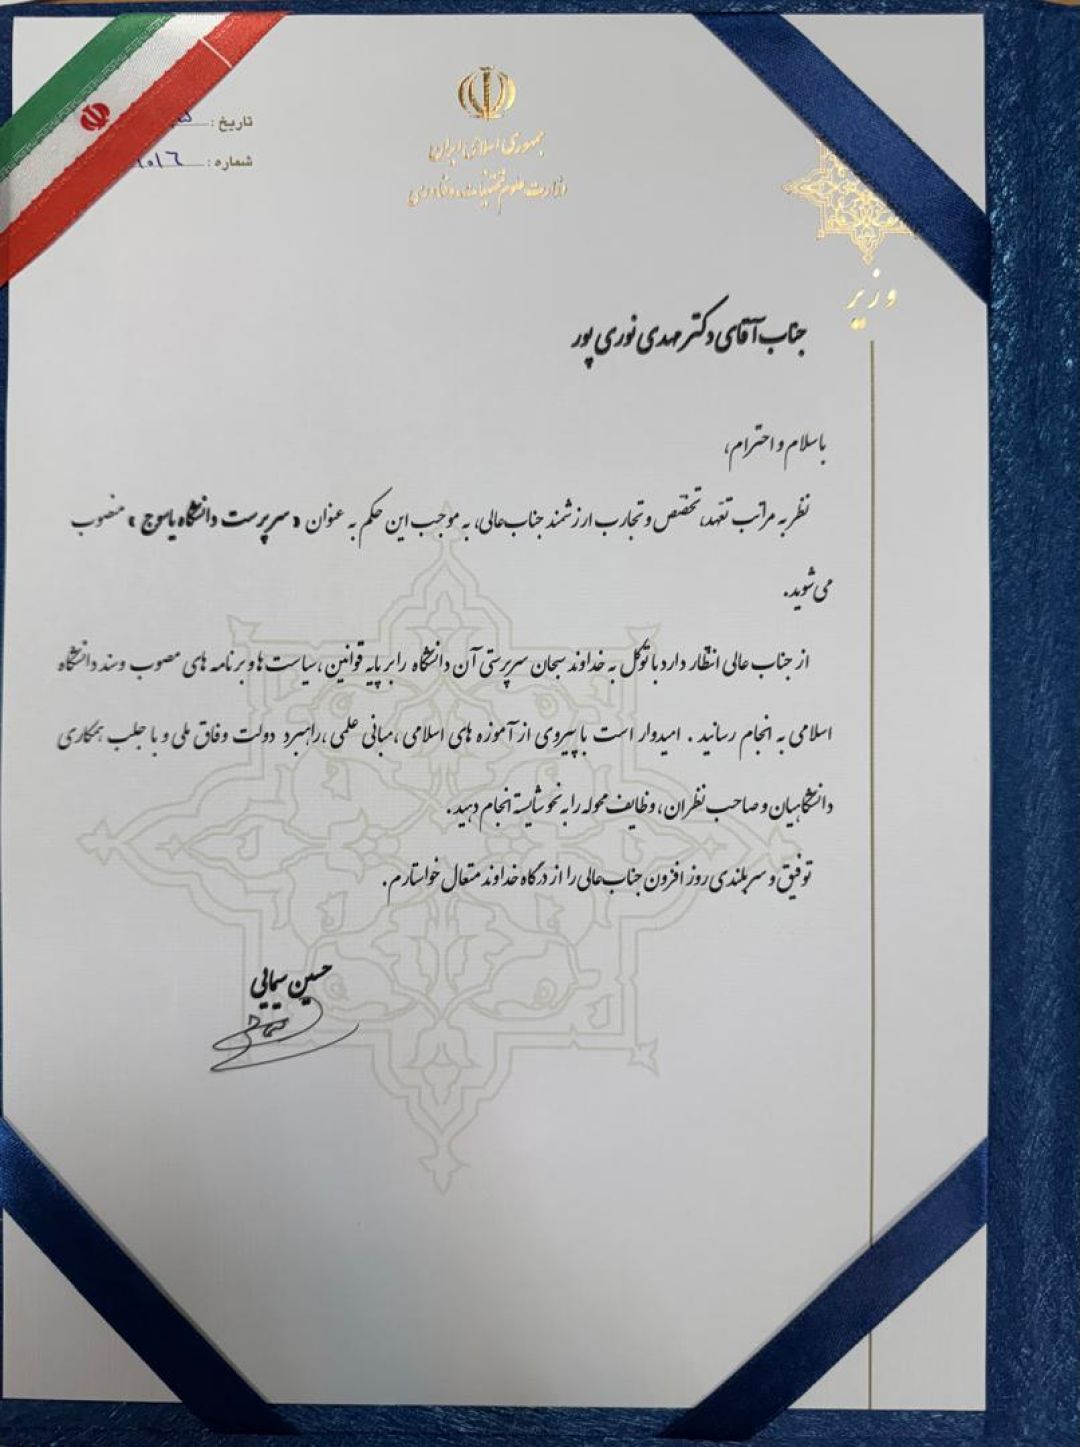 جمهوری اسلامی ایران
وزارت علوم تحقیقات و فناوری
تاریخ :
شماره :
وزیر
جناب آقای دکتر مهدی نوری پور
باسلام و احترام،
نظر به مراتب تعهد، تخصص و تجارب ارزشمند جناب‌عالی، به موجب این حکم به عنوان « سرپرست دانشگاه یاسوج » منصوب
می شوید.
از جناب عالی انتظار دارد با توکل به خداوند سبحان سرپرستی آن دانشگاه را بر پایه قوانین، سیاست ها و برنامه های مصوب و سند دانشگاه
اسلامی به انجام رسانید . امیدوار است با پیروی از آموزه های اسلامی ، مبانی علمی ، راهبرد دولت وفاق ملی و با جلب همکاری
دانشگاهیان و صاحب نظران ، وظایف محوله را به نحو شایسته انجام دهید.
توفیق و سربلندی روز افزون جناب‌عالی را از درگاه خداوند متعال خواستارم.
حسین سیمایی